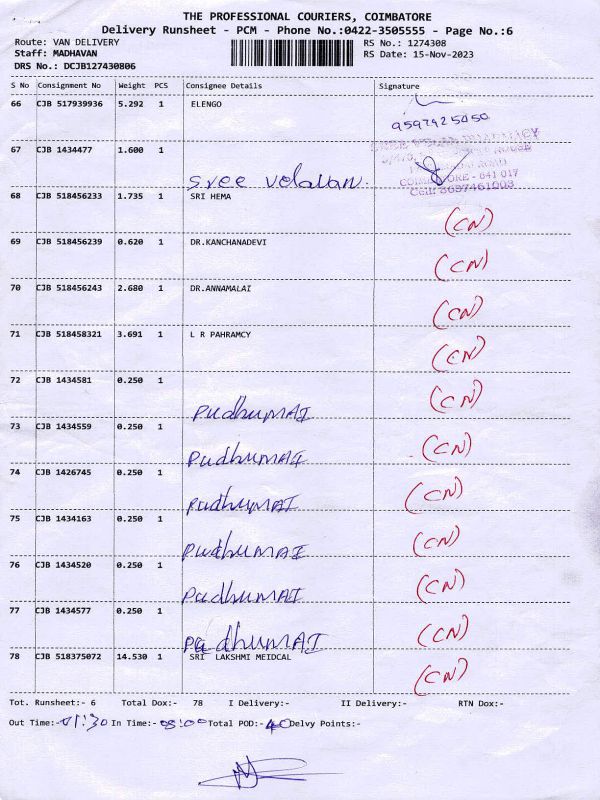 THE PROFESSIONAL COURIERS, COIMBATORE
Delivery Runsheet - PCM - Phone No.:0422-3505555 - Page No.:6
Route: VAN DELIVERY RS No.: 1274308
Staff: MADHAVAN RS Date: 15-Nov-2023
DRS No.: DCJB127430806
S No Consignment No Weight PCS Consignee Details Signature
66 CJB 517939936 5.292 1 ELENGO
9597925050
67 CJB 1434477 1.600 1
Sree Velavan
ROAD
COIMBATORE - 641 017
Cell: 8637461003
68 CJB 518456233 1.735 1 SRI HEMA (CN)
69 CJB 518456239 0.620 1 DR.KANCHANADEVI (CN)
70 CJB 518456243 2.680 1 DR.ANNAMALAI (CN)
71 CJB 518458321 3.691 1 L R PAHRAMCY (CN)
72 CJB 1434581 0.250 1 (CN)
PudhuMAI
73 CJB 1434559 0.250 1 (CN)
PudhuMAI
74 CJB 1426745 0.250 1 (CN)
PudhuMAI
75 CJB 1434163 0.250 1 (CN)
PudhuMAI
76 CJB 1434520 0.250 1 (CN)
PudhuMAI
77 CJB 1434577 0.250 1 (CN)
PudhuMAI
78 CJB 518375072 14.530 1 SRI LAKSHMI MEIDCAL (CN)
Tot. Runsheet:- 6 Total Dox:- 78 I Delivery:- II Delivery:- RTN Dox:-
Out Time:- 01:30 In Time:- 08:00 Total POD:- 40 Delvy Points:-